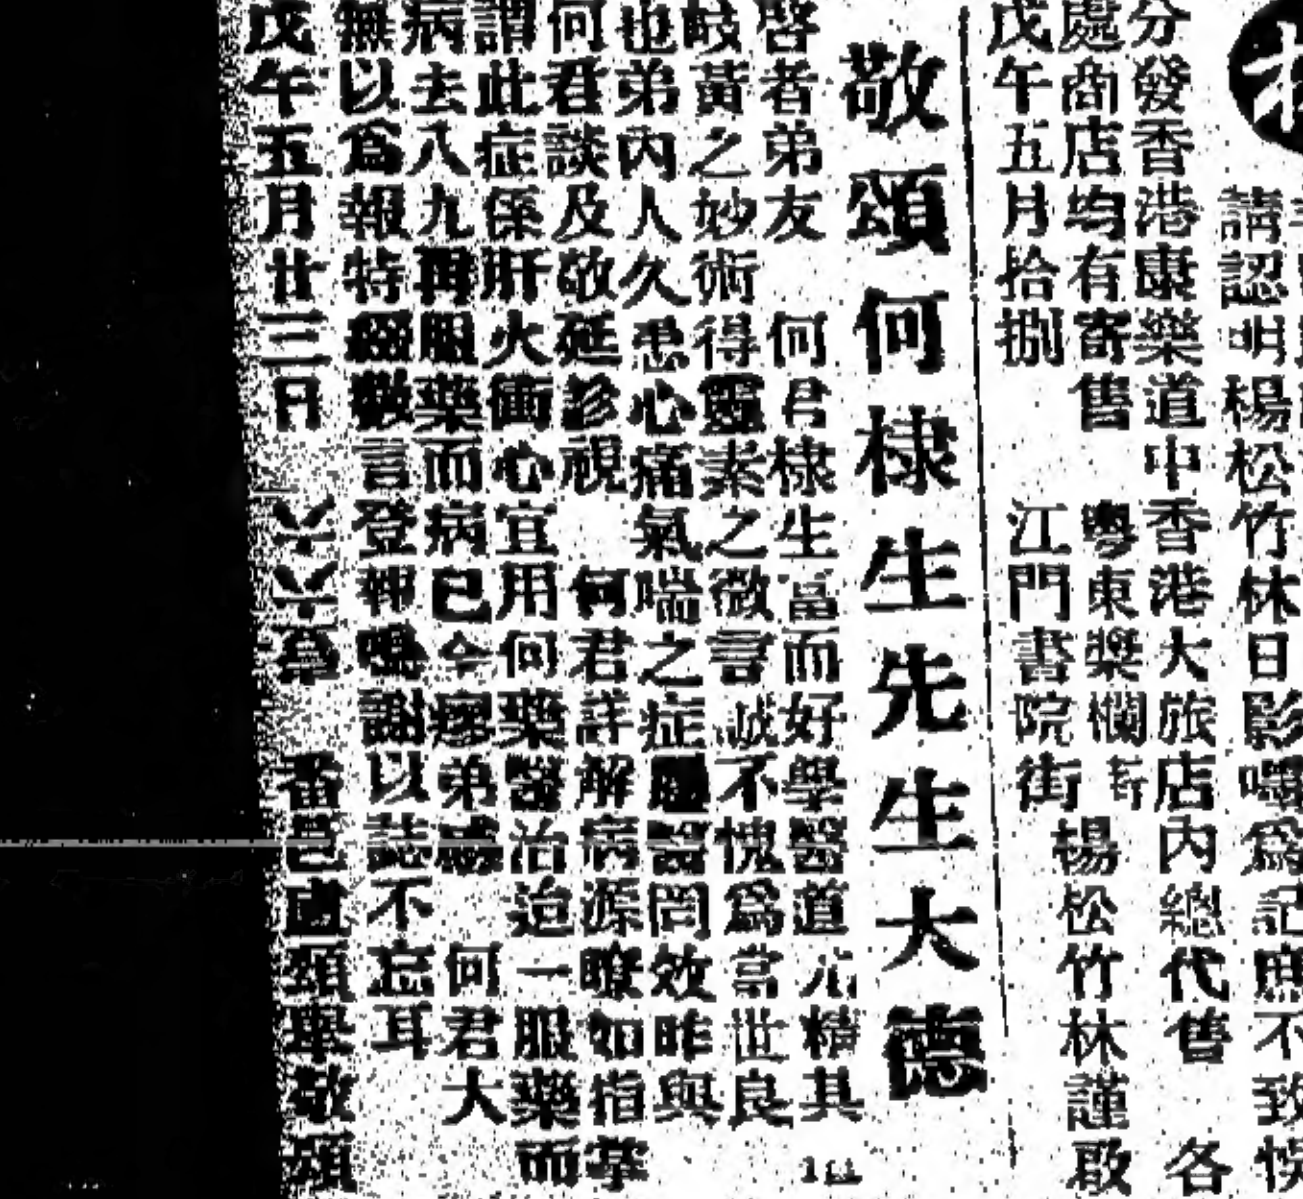 請認明楊松竹林日影嘜爲記庶不致悞
分發香港康樂道中香港大旅店內總代售 各
處商店均有寄售 粵東槳欄街楊松竹林謹啟
戊午五月拾捌 江門書院街
敬頌何棣生先生大德
啓者弟友 何君棣生富而好學醫道 精其
岐黃之妙術得靈素之微言誠不愧爲當世良
也弟內人久患心痛氣喘之症 醫罔效昨與
何君談及敬延診視 何君詳解病源瞭如指掌
謂此症係肝火衝心宜用何藥醫治迨一服藥而
病去八九再服藥而病已全瘳弟感 何君大
無以爲報特綴數言登報鳴謝以誌不忘耳
戊午五月廿三日 爲 番邑 敬頌